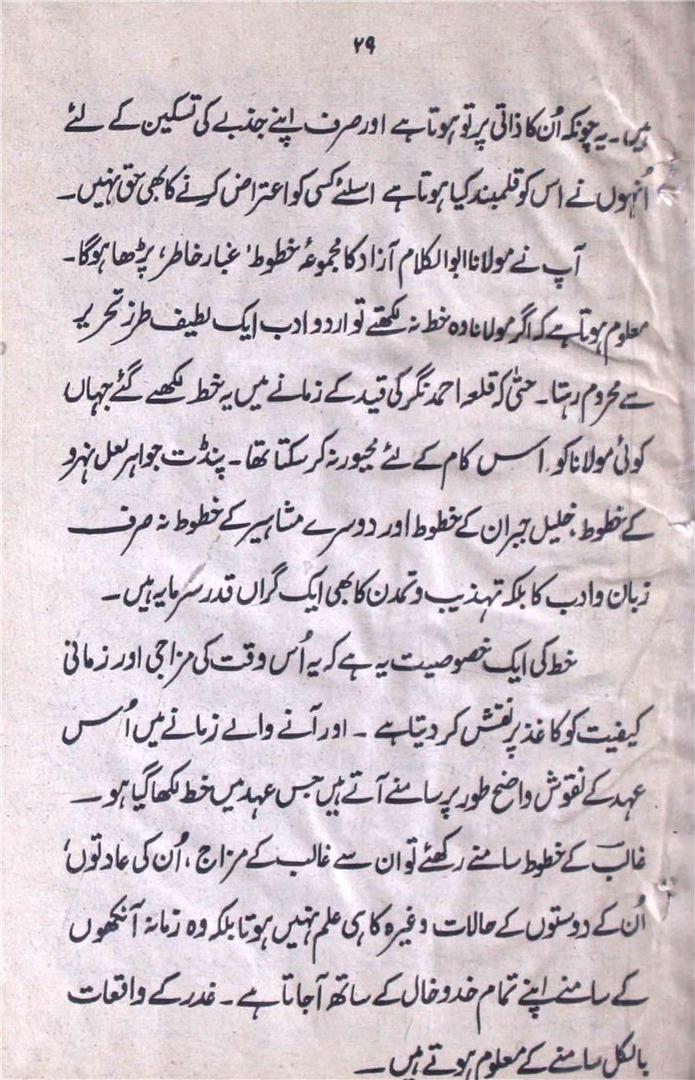 ۲۹
ہیں۔ یہ چونکہ اُن کا ذاتی پرتو ہوتا ہے اور صرف اپنے جذبے کی تسکین کے لئے
اُنہوں نے اس کو قلمبند کیا ہوتا ہے اسلئے کسی کو اعتراض کرنے کا بھی حق نہیں۔
آپ نے مولانا ابوالکلام آزاد کا مجموعۂ خطوط ' غبار خاطر، پڑھا ہوگا۔
معلوم ہوتا ہے کہ اگر مولانا وہ خط نہ لکھتے تو اردو ادب ایک لطیف طرز تحریر
سے محروم رہتا۔ حتیٰ کہ قلعہ احمد نگر کی قید کے زمانے میں یہ خط لکھے گئے جہاں
کوئی مولانا کو اس کام کے لئے مجبور نہ کر سکتا تھا۔ پنڈت جواہر لعل نہرو
کے خطوط، خلیل جبران کے خطوط اور دوسرے مشاہیر کے خطوط نہ صرف
زبان و ادب کا بلکہ تہذیب و تمدن کا بھی ایک گراں قدر سرمایہ ہیں۔
خط کی ایک خصوصیت یہ ہے کہ یہ اُس وقت کی مزاجی اور زمانی
کیفیت کو کاغذ پر نقش کر دیتا ہے۔ اور آنے والے زمانے میں اُس
عہد کے نقوش واضح طور پر سامنے آتے ہیں جس عہد میں خط لکھا گیا ہو۔
غالب کے خطوط سامنے رکھئے تو ان سے غالب کے مزاج، اُن کی عادتوں،
اُن کے دوستوں کے حالات وغیرہ کا ہی علم نہیں ہوتا بلکہ وہ زمانہ آنکھوں
کے سامنے اپنے تمام خدوخال کے ساتھ آجاتا ہے۔ غدر کے واقعات
بالکل سامنے کے معلوم ہوتے ہیں۔